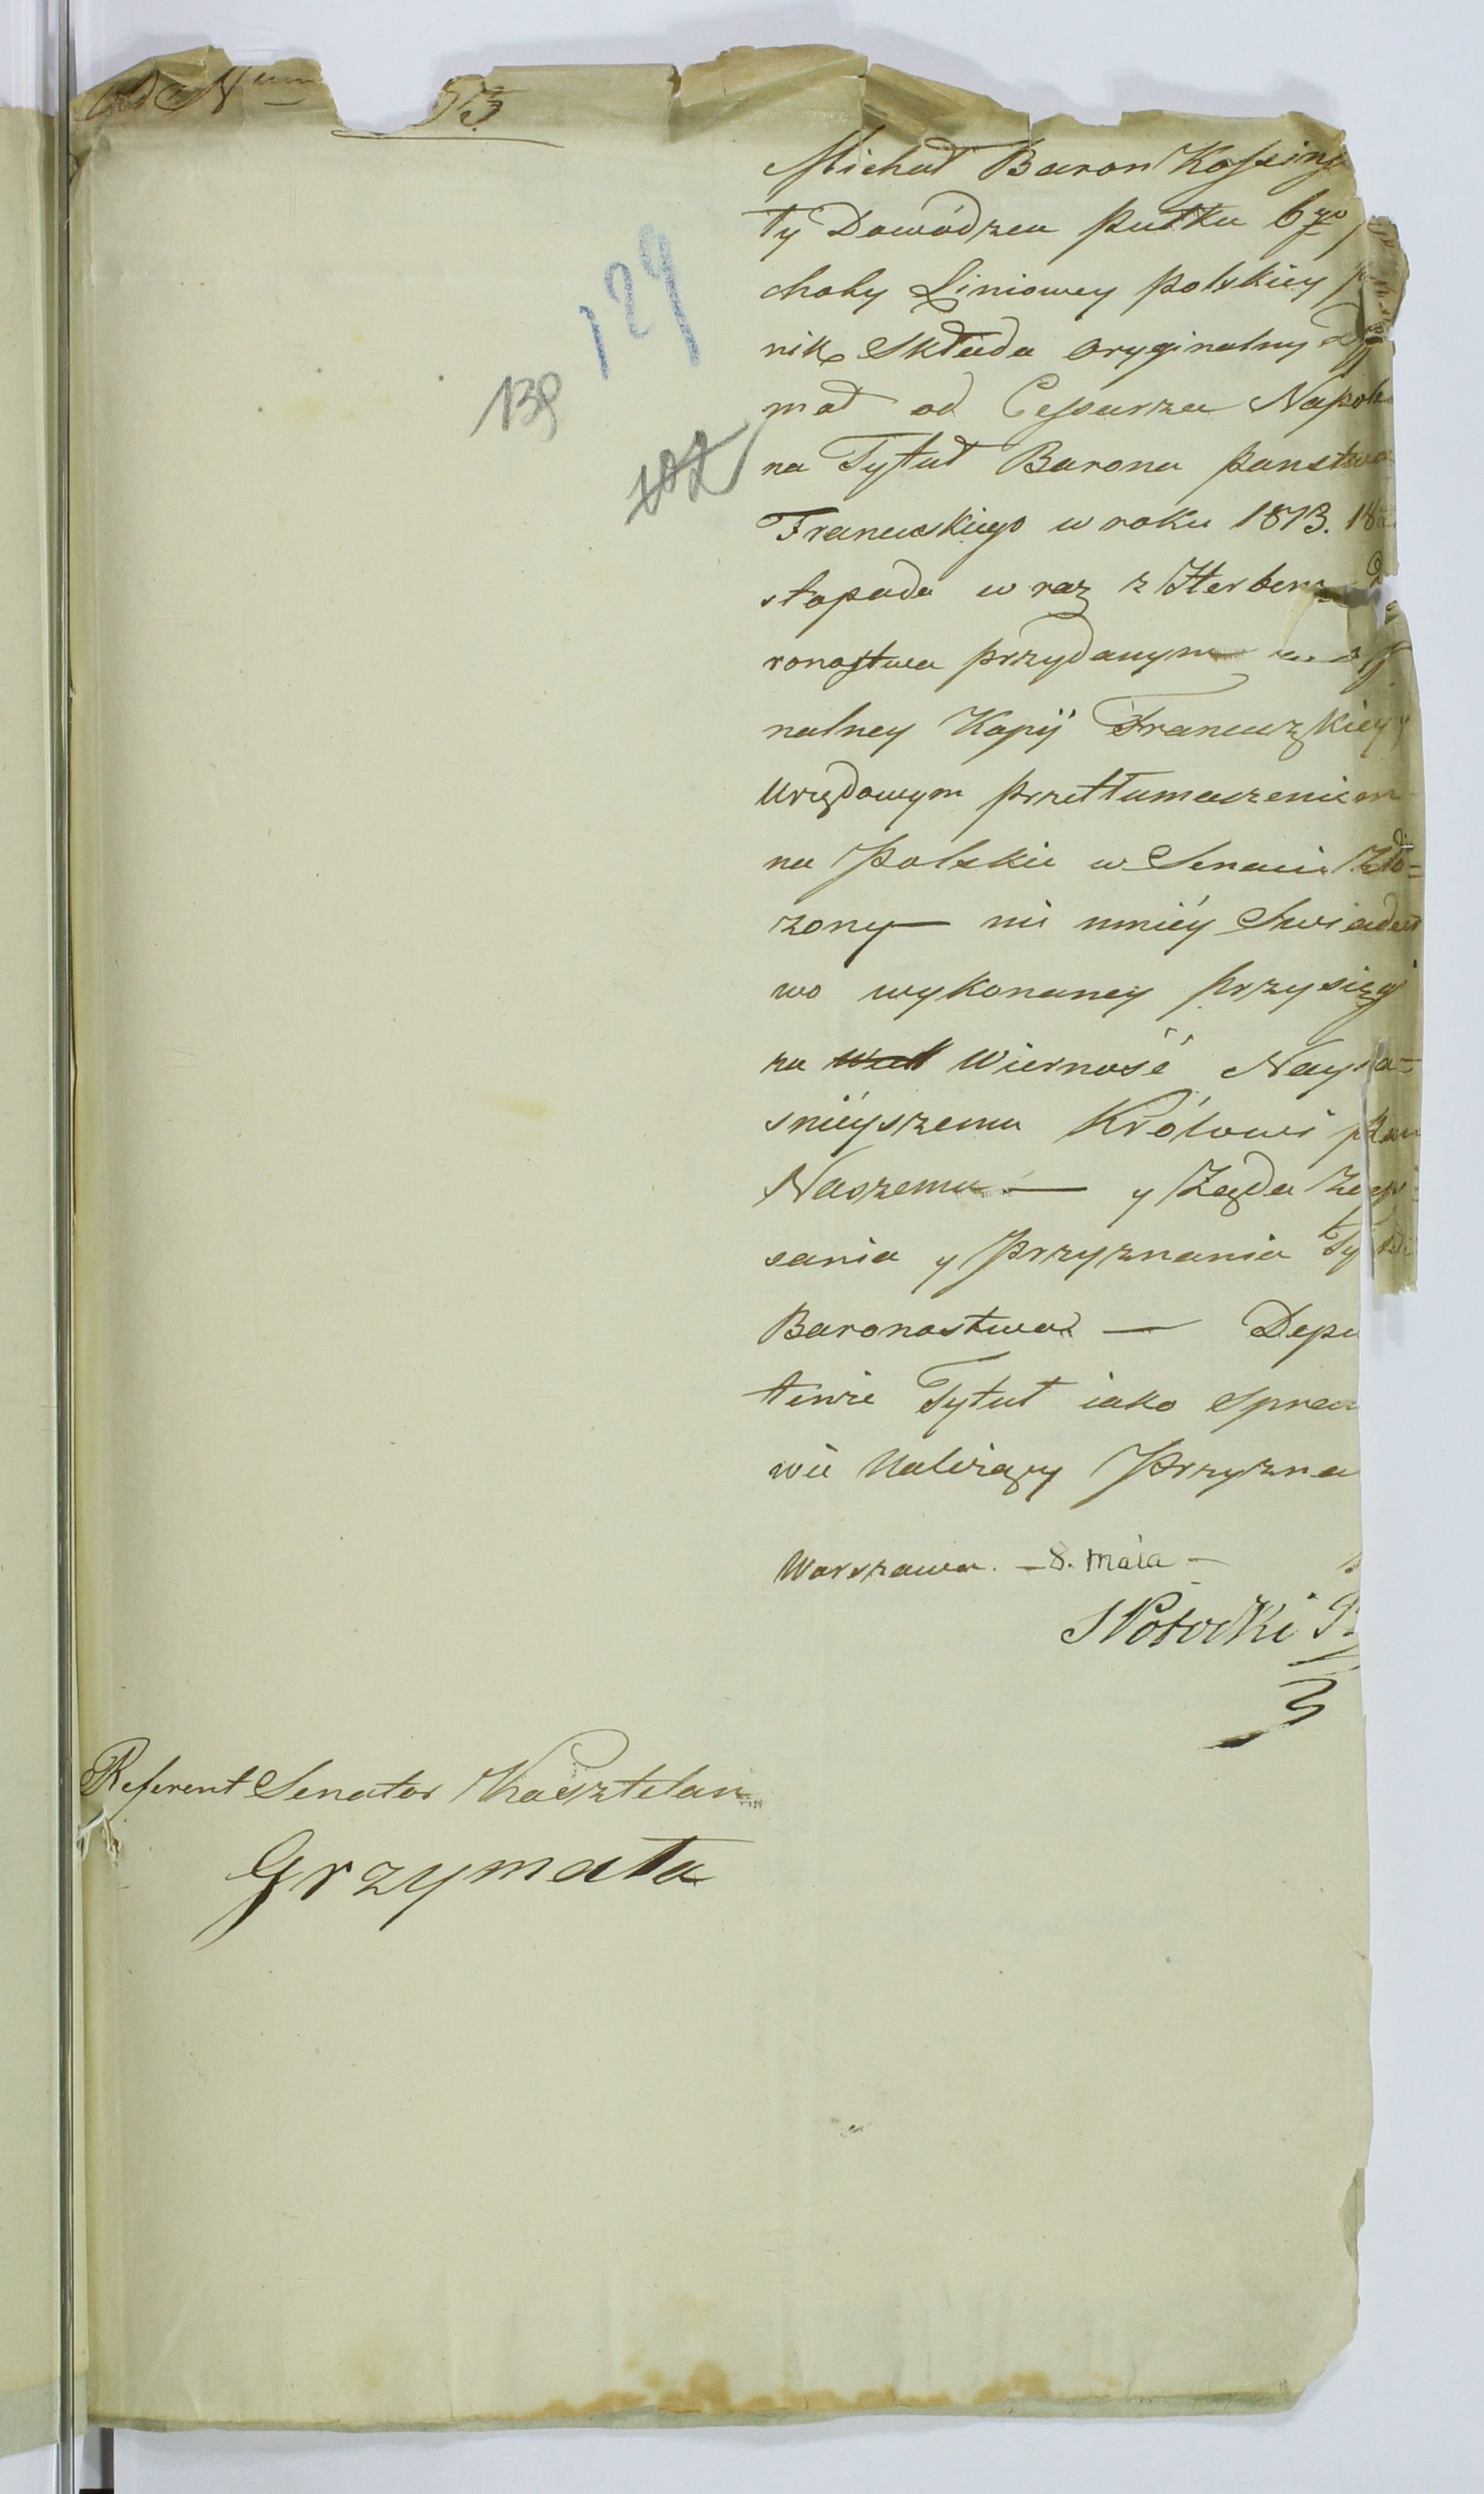 Ad Num 53.
129
138
Michał Baron Kossin
ty Dowódzca pułku 6go
choty Liniowey polskiey
nik Składa oryginalny
mat od Cessarza Napole
na Tytuł Barona panstwa
Francuskiego w roku 1813. 18
stopada w raz z Herbem
ronostwa przydanym
nalney Kopij Francuzkiey
Urzędowym przetłumaczeniem
na Polskie w Senacie Zło=
zony — nie mniéy Swiadec
wo wykonaney przysięgi
na Wierność Nayia=
śnieyszemu Królowi pan
Naszemu — y Żąda Zapi
sania y Przyznania Ty
Baronostwa — Depu
tenże Tytuł iako Spra
wie Należący Przyzna
Warszawa. — 8. Maia —
S Potocki
Referent Senator Kasztelan
Grzymała